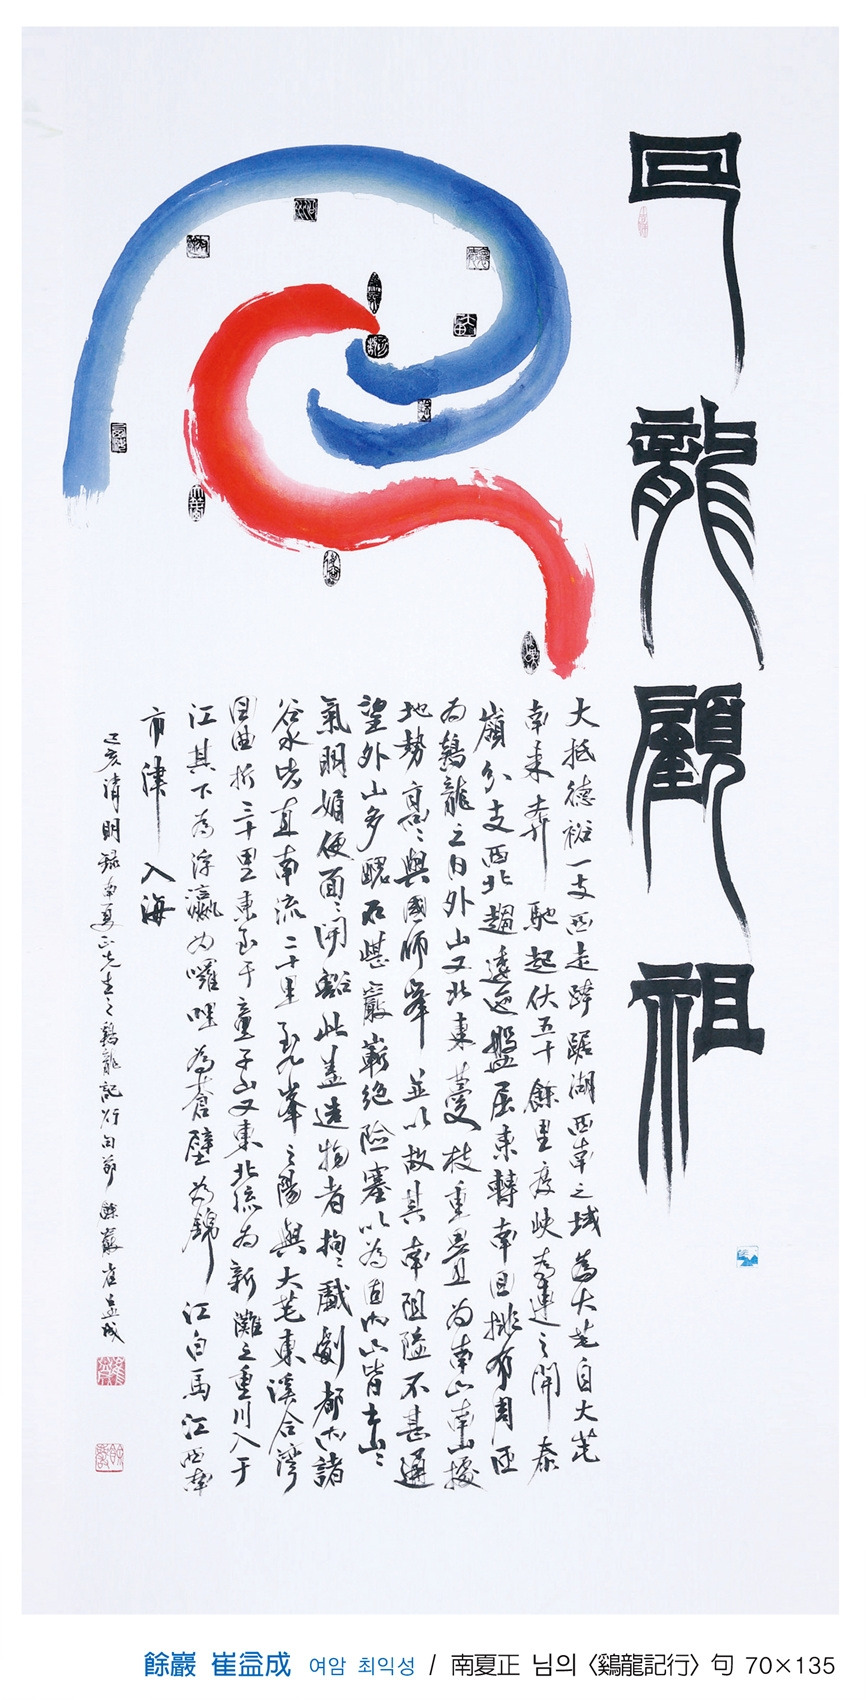 回龍顧祖
大抵德裕一支西走蹲踞湖西南之域為大芚自大芚
南来奔馳起伏五十餘里度峽為連之開泰
嶺分支西北趨逶迤盤屈東轉南回排布周匝
为鷄龍之日外山又北東蔓枝重疊为南山南山據
地勢高々與國師峯並以故其南阻隘不甚通
望外山多醜石嵁巖嶄絶險塞以為固内山皆土山々
氣明媚便面々開豁此盖造物者拘々戲劇都内諸
谷水皆直南流二十里至九峯之陽與大芚東溪合灣
回曲折三十里東至于童子山又東北流为新灘之重川入于
江其下為浮瀛为囉哩為蒼壁為錦江白馬江西南
市津入海
己亥清明録南夏正先生之鷄龍記行句節 餘巖崔益成
餘巖 崔益成 여암 최익성 / 南夏正 님의 〈鷄龍記行〉 句 70×135